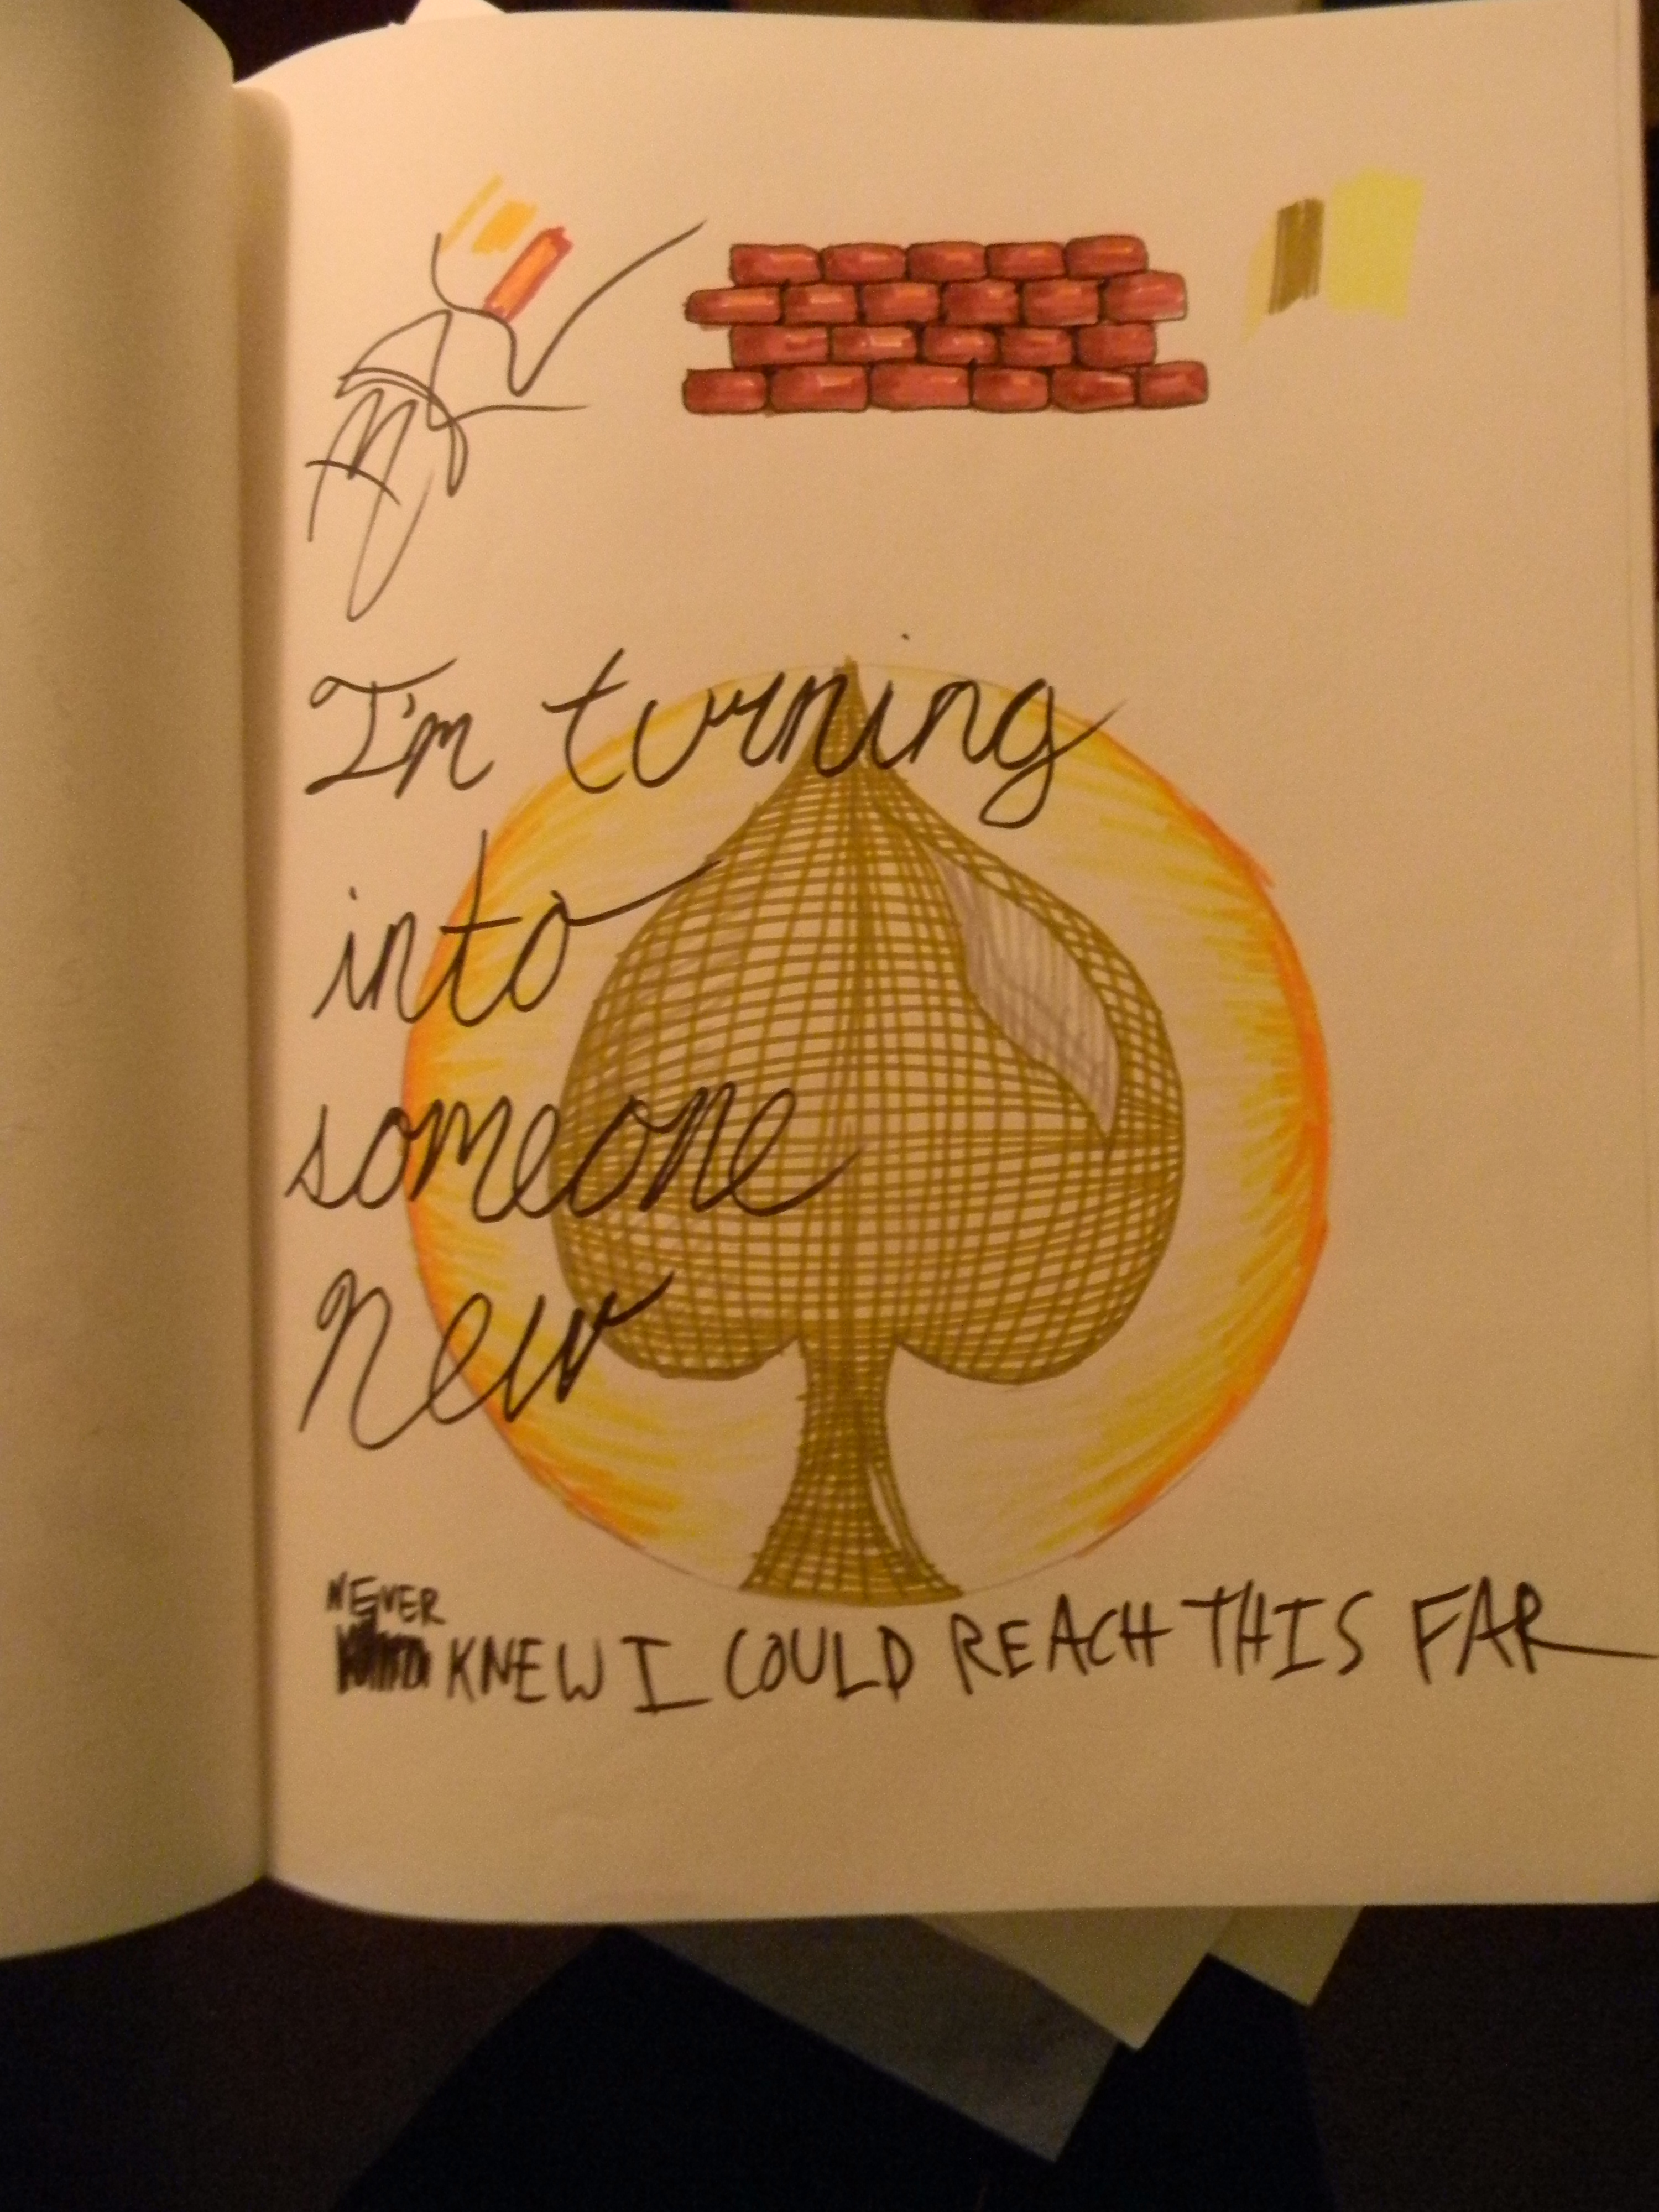 I'm turning
into
someone
new
NEVER
KNEW I COULD REACH THIS FAR